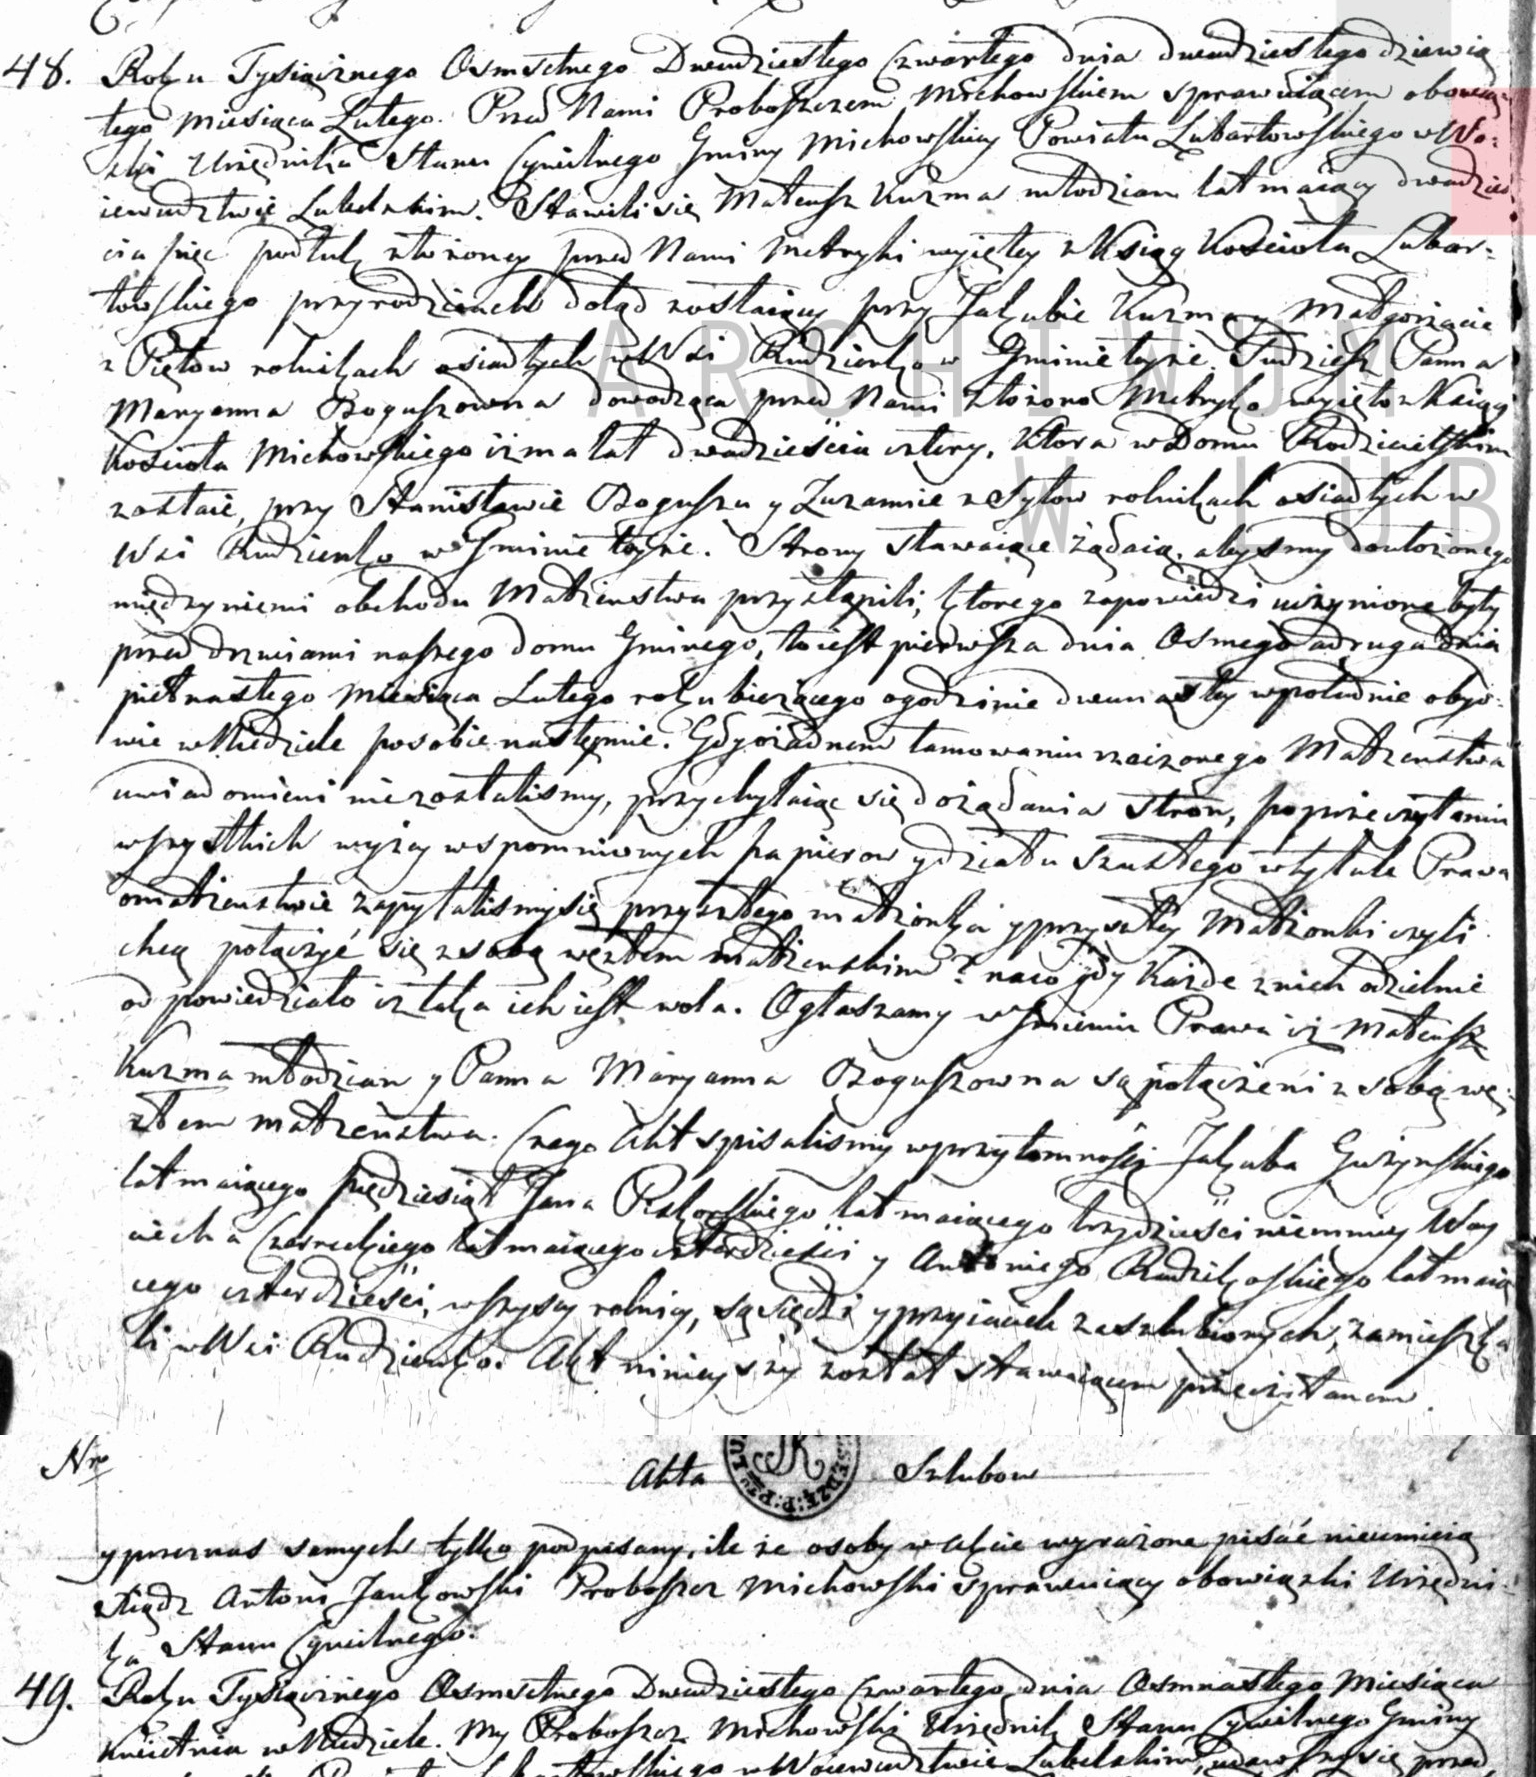 48. Roku Tysiącznego Osmsetnego Dwudziestego Czwartego dnia dwudziestego dziewią
tego Miesiąca Lutego. Przed Nami Proboszczem Michowskiem sprawuiącem obowią
zki Urzędnika Stanu Cywilnego Gminy Michowskiey Powiatu Lubartowskiego w Wo-
iewudztwie Lubelskim. Stawili się Mateusz Kuzma młodzian lat maiący dwadzieś
cia pięc podług złożoney przed Nami Metryki wyiętey z Ksiąg Kościoła Lubar-
towskiego przy rodzicach dotąd zostaiący przy Jakubie Kuzma y Małgorzacie
z Piętow rolnikach osiadłych w Wsi Rudzienko w Gminie teyże. Tudzież Panna
Maryanna Boguszowna dowodząca przed Nami złożoną Metryką wyiętą z Ksiąg
Kościoła Michowskiego iż ma lat dwadzieścia cztery, ktora w Domu Rodzicielskim
zostaie, przy Stanisławie Boguszu y Zuzannie z Sytow rolnikach osiadłych w
Wsi Rudzienko w Gminie teyże. Strony stawaiące żądaią, abysmy do ułożonego
między niemi obchodu Małżenstwa przystąpili, ktorego zapowiedzi uczynione były
przed drzwiami naszego domu Gminego, to iest pierwsza dnia Osmego a druga dnia
piętnastego Miesiąca Lutego roku bieżącego o godzinie dwunastey w południe oby-
wie w Niedziele po sobie następnie. Gdy o żadnem tamowaniu rzeczonego Małżenstwa
uwiadomieni nie zostalismy, przychylaiąc się do żądania stron, po przeczytaniu
wszystkich wyżey wspomnionych papierow y działu szustego w tytule Prawa
o małżenstwie zapytalismy się przyszłego małżonka y przyszłey Małżonki czyli
chcą połączyć się z sobą węzłem małżenskim? na co gdy każde z nich odzielnie
odpowiedziało iż taka ich iest wola. Ogłaszamy w Imieniu Prawa iż Mateusz
Kuzma młodzian y Panna Maryanna Boguszowna są połączeni z sobą wę-
złem małżeństwa. Czego Akt spisalismy w przytomności Jakuba Guzynskiego
lat maiącego piędziesiąt Jana lat maiącego trzydzieści niemniey Woy
ciecha Czarneckiego lat maiącego czterdzieści y Antoniego lat maią
cego czterdzieści, wszyscy rolnicy, sąsiedzi y przyiaciele zaslubionych, zamieszka
li w Wsi Rudzienko. Akt ninieyszy został stawaiącem przeczytanem
Nro Akta Szlubow
y przez nas samych tylko podpisany, ile że osoby w akcie wyrażone pisać nieumieią
Xiądz Antoni Jankowski Proboszcz Michowski sprawuiący obowiązki Urzędni-
ka Stanu Cywilnego.
49. Roku Tysiącznego Osmsetnego Dwudziestego Czwartego dnia Osmnastego Miesiąca
Kwietnia w Niedziele. My Proboszcz Michowski Urzędnik Stanu Cywilnego Gminy
w Woiewudztwie Lubelskim, udawszy się przed
ARCHIWUM
W LUB